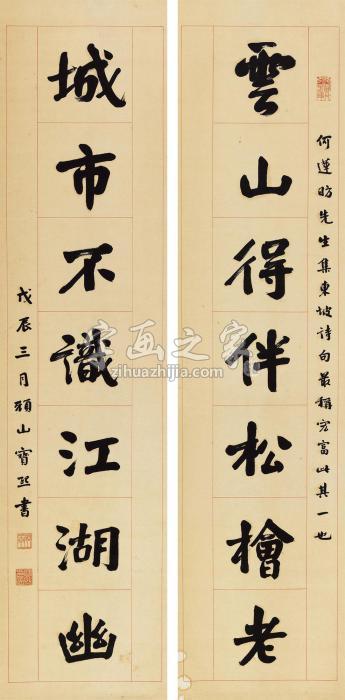 雲山得伴松檜老
何蘧盼先生集東坡詩句最稱宏富此其一也
城市不識江湖幽
戊辰三月頖山寶熙書
字画之家
zihuazhijia.com